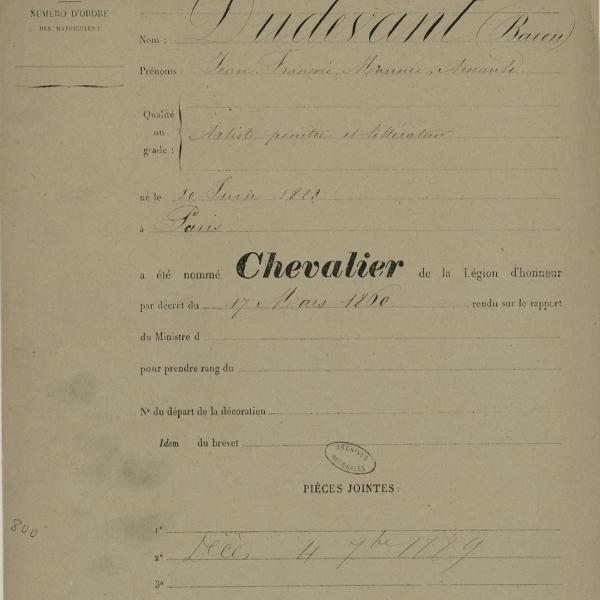 NUMÉRO D'ORDRE
DES MATRICULES :
Nom : Dudevant (Baron)
Prénoms : Jean, François, Maurice, Arnauld
Qualité
ou
grade : Artiste peintre et littérateur
né le 30 Juin 1823
à Paris
a été nommé Chevalier de la Légion d'honneur
par décret du 17 Mars 1860 rendu sur le rapport
du Ministre d
pour prendre rang du
No du départ de la décoration
Idem du brevet
ARCHIVES
NATIONALES
PIÈCES JOINTES :
1o
800
2o Décès 4 7bre 1889
3o